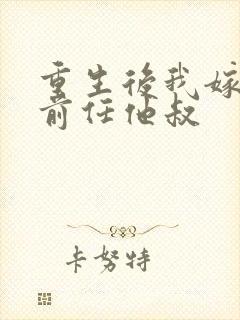 重生後我嫁
前任他叔
卡努特